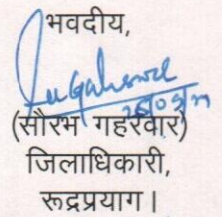 भवदीय,
(सौरभ गहरवार)
जिलाधिकारी,
रूद्रप्रयाग।